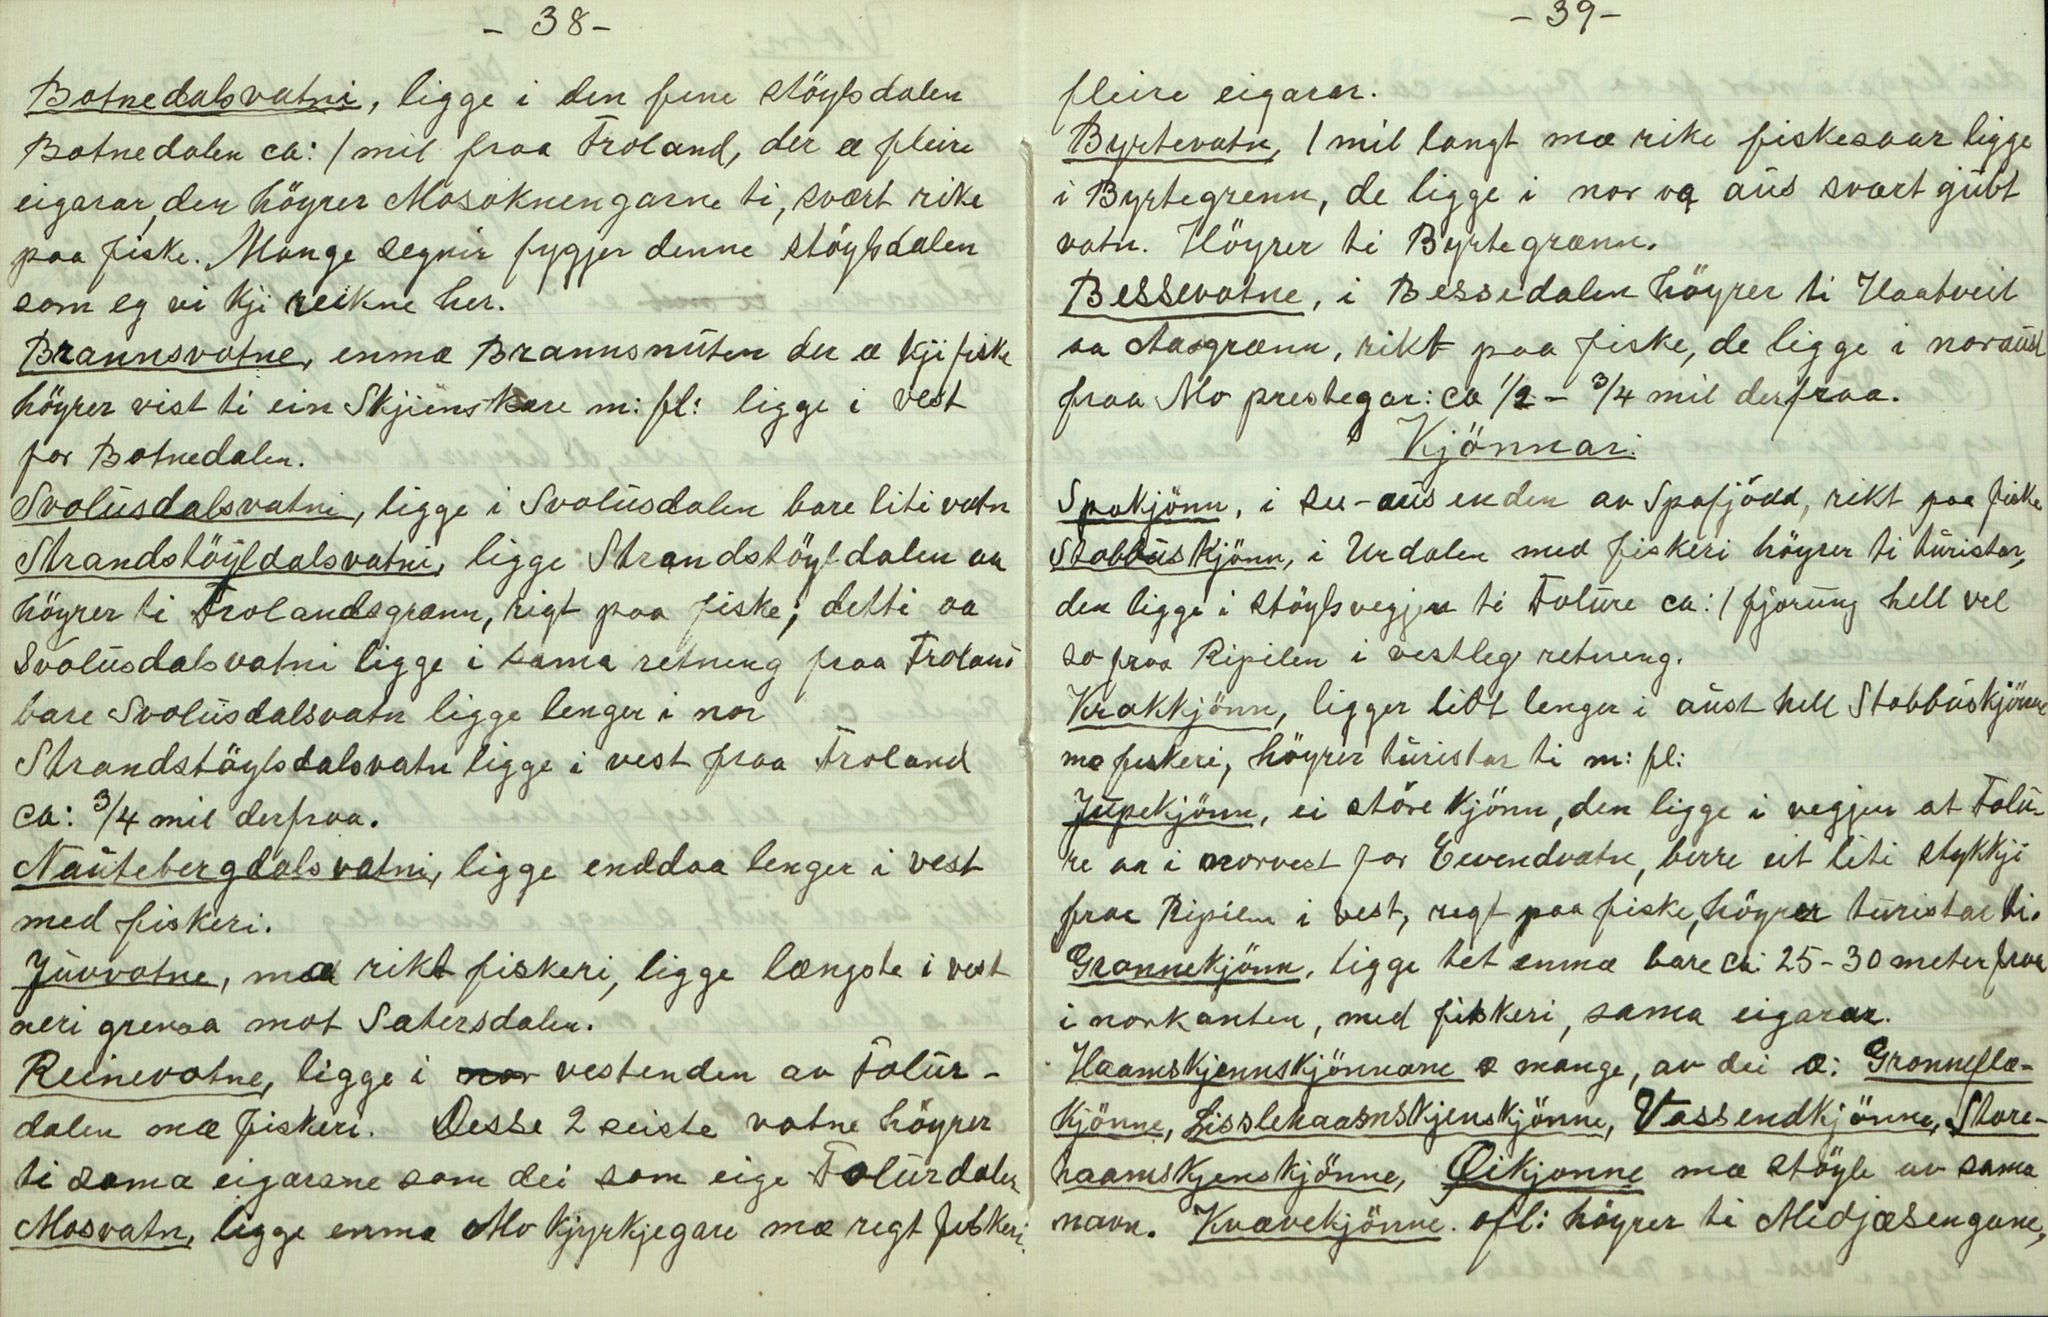 - 38 -
Botnedalsvatni, ligge i den fine stöylsdalen
Botnedalen ca: 1 mil fraa Froland, der æ fleire
eigarar, den höyrer Mosoknengarne ti, svært rike
paa fiske. Mange segnir fygjer denne stöylsdalen
som eg vi kji reikne her.
Brannsvatne, enmæ Brannsnuten der æ kji fiske
höyrer vist ti ein Skjienskare m: fl: ligge i vest
for Botnedalen.
Svolusdalsvatni, ligge i Svolusdalen bare liti vatn
Strandstöyldalsvatni, ligge Strandstöyldalen aa
höyrer ti Frolandsgrænn, rigt paa fiske, detti aa
Svolusdalsvatni ligge i sama retneng fraa Froland
bare Svolusdalsvatn ligge lenger i nor
Strandstöylsdalsvatn ligge i vest fraa Froland
ca: 3/4 mil derfraa.
Nautebergdalsvatni, ligge enddaa lenger i vest
med fiskeri.
Juvvatne, mæ rikt fiskeri, ligge længste i vest
neri grensa mot Satersdalen.
Reinevatne, ligge i nor vestenden av Folur-
dalen mæ fiskeri. Desse 2 seiste vatne höyrer
ti sama eigarane som dei som eige Folurdalen
Mosvatn, ligge enmæ Mo kjyrkjegare mæ regt fiskeri,
- 39 -
fleire eigarar.
Byrtevatn, 1 mil langt mæ rike fiskesaar ligge
i Byrtegrenn, de ligge i nor va aus svært gjubt
vatn. Höyrer ti Byrtegrænn.
Bessevatne, i Bessedalen höyrer ti Haatveit
aa Aasgrænn, rikt paa fiske, de ligge i noraust
fraa Mo prestegar: ca 1/2 - 3/4 mil derfraa.
Kjönnar:
Spakjönn, i su-aus enden av Spafjödd, rikt paa fiske
Stabbuskjönn, i Urdalen med fiskeri höyrer ti turistar,
den ligge i stöylsvegjen ti Folure ca: 1 fjorung hell vel
so fraa Ripilen i vestleg retneng.
Krakkjönn, ligger litt lenger i aust hell Stabbuskjönne
mæ fiskeri, höyrer turistar ti m: fl:
Jupekjönn, ei störe kjönn, den ligge i vegjen at Folu-
re aa i norvest for Eevendvatn, berre eit liti stykkji
fraa Ripilen i vest, regt paa fiske, höyrer turistar ti.
Grannekjönn, ligge tet enmæ bare ca: 25-30 meter fraa
i norkanten, med fiskeri, sama eigarar.
Haamskjennskjönnane æ mange, av dei æ: Gronneflæ-
kjönne, Lisslehaamskjenskjönne, Vassendkjönne, Store-
haamskjenskjönne, Øikjonne mæ stöyle av sama
navn. Kvævekjönne. ofl: höyrer ti Midjæsengane,